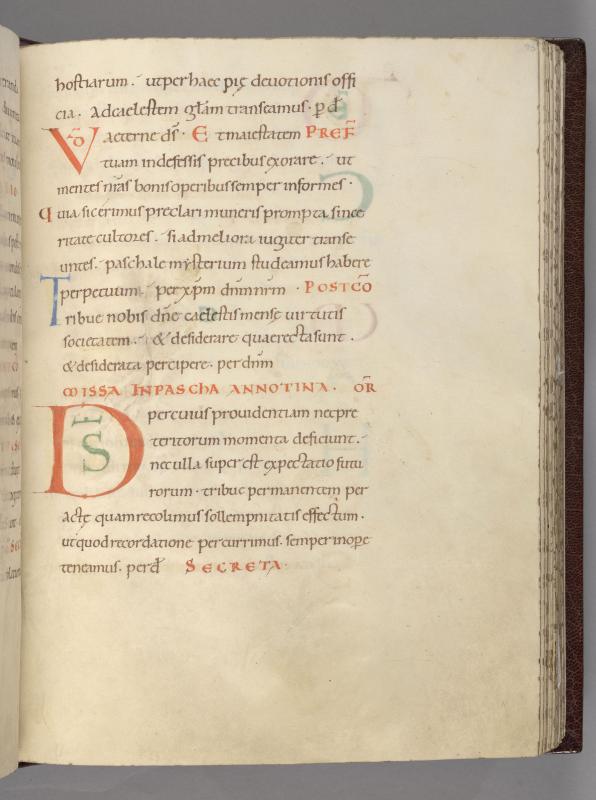 hostiarum . ut per haec pię deuotionis offi
cia . ad caelestem gl̄am transeamus . p̄ d̄
VD̄ aeterne d̄s . Et maiestatem PREF̄
tuam indefessis precibus exorare . ut
mentes n̄r̄as bonis operibus semper informes .
quia sic erimus preclari muneris prompta since
ritate cultores . si ad meliora iugiter transe
untes . paschale mysterium studeamus habere
perpetuum . per xp̄m dn̄m nr̄m . POSTCŌ
Tribue nobis dn̄e caelestis mensę uirtutis
societatem . & desiderare quae recta sunt .
& desiderata percipere . per dn̄m
MISSA IN PASCHA ANNOTINA . OR̄
D̄S per cuius prouidentiam nec pre
teritorum momenta deficiunt .
nec ulla superest expectatio futu
rorum . tribue permanentem per
actę quam recolimus sollempnitatis effectum .
ut quod recordatione percurrimus . semper in ope
teneamus . per d̄ SECRETA .